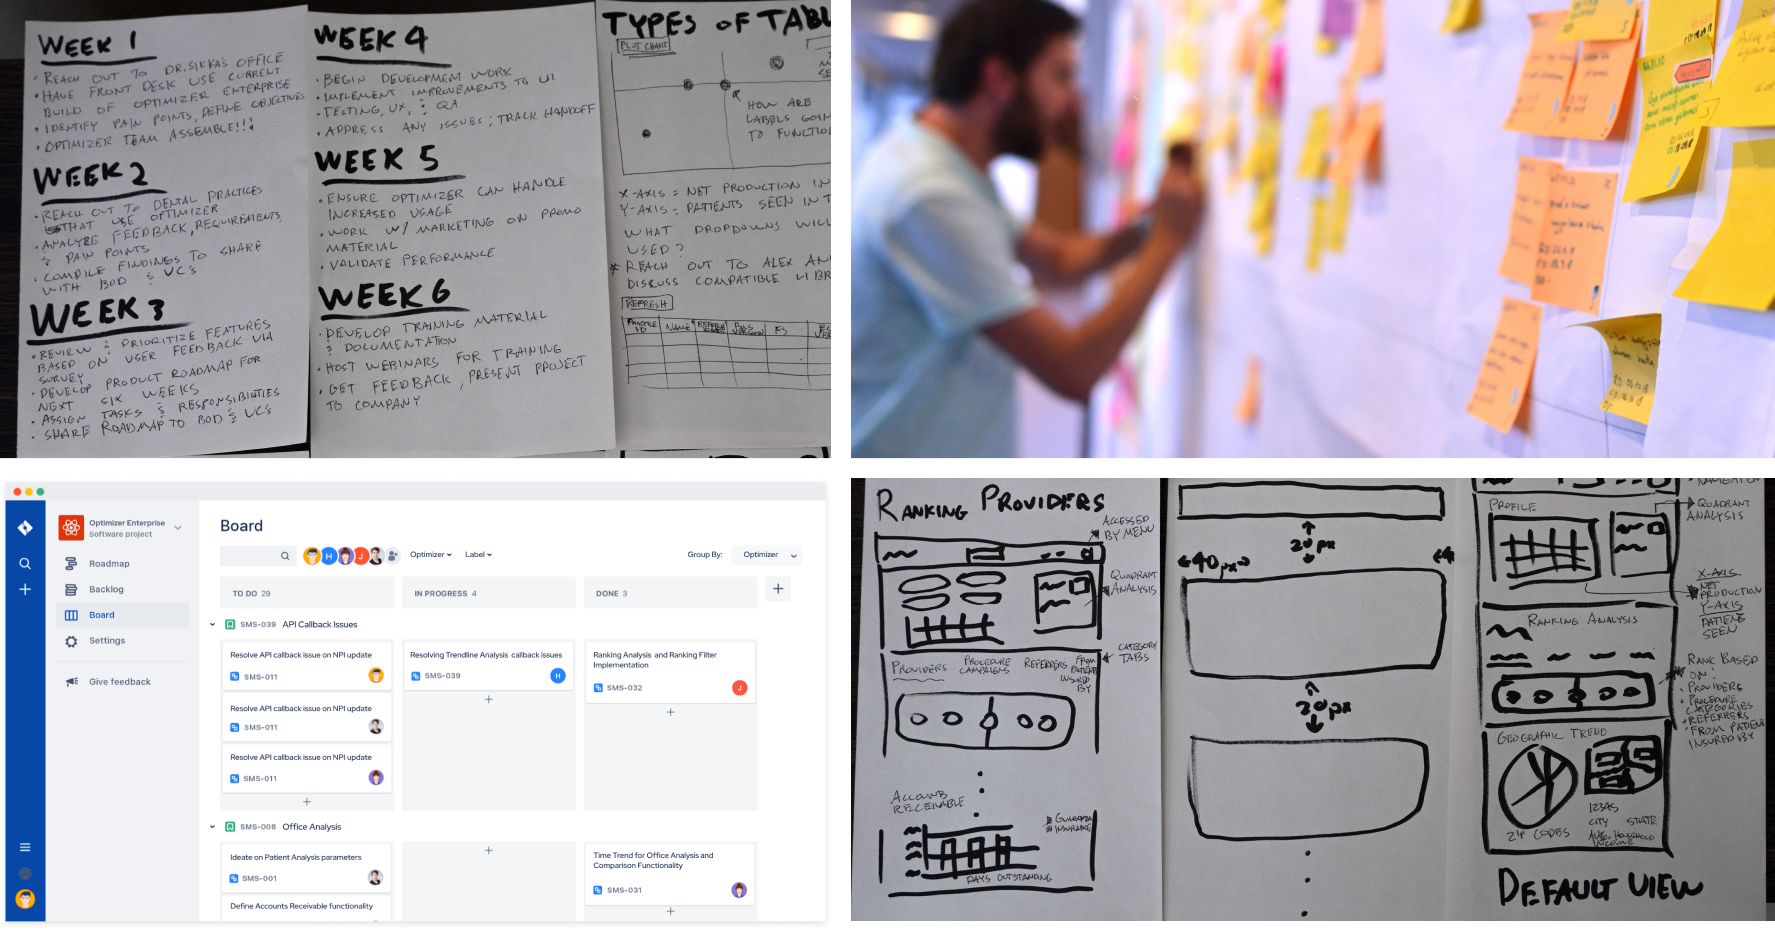 WEEK 1
• REACH OUT TO DR. SIKKA'S OFFICE
• HAVE FRONT DESK USE CURRENT
BUILD OF OPTIMIZER ENTERPRISE
• IDENTIFY PAIN POINTS, DEFINE OBJECTIVES
• OPTIMIZER TEAM ASSEMBLE!!!
WEEK 2
• REACH OUT TO DENTAL PRACTICES
THAT USE OPTIMIZER
• ANALYZE FEEDBACK, REQUIREMENTS,
& PAIN POINTS
• COMPILE FINDINGS TO SHARE
WITH BOD & VC'S
WEEK 3
• REVIEW & PRIORITIZE FEATURES
BASED ON USER FEEDBACK VIA
SURVEY
• DEVELOP PRODUCT ROADMAP FOR
NEXT SIX WEEKS
• ASSIGN TASKS & RESPONSIBILITIES
• SHARE ROADMAP TO BOD & VCS
WEEK 4
• BEGIN DEVELOPMENT WORK
• IMPLEMENT IMPROVEMENTS TO UI
• TESTING, UX, & QA
• ADDRESS ANY ISSUES; TRACK HANDOFF
WEEK 5
• ENSURE OPTIMIZER CAN HANDLE
INCREASED USAGE
• WORK W/ MARKETING ON PROMO
MATERIAL
• VALIDATE PERFORMANCE
WEEK 6
• DEVELOP TRAINING MATERIAL
& DOCUMENTATION
• HOST WEBINARS FOR TRAINING
• GET FEEDBACK, PRESENT PROJECT
TO COMPANY
TYPES OF TABL
PLOT CHART
HOW ARE
LABELS GOIN
TO FUNCTIO
X-AXIS = NET PRODUCTION IN
Y-AXIS = PATIENTS SEEN IN T
WHAT DROPDOWNS WILL
USED?
* REACH OUT TO ALEX AN
DISCUSS COMPATIBLE LIBR
REFRESH
PRACTICE ID NAME
Board
Optimizer Enterprise
Software project
Roadmap
Backlog
Board
Settings
Give feedback
H
J
Optimizer
Label
Group By:
Optimizer
TO DO 29
IN PROGRESS 4
DONE 3
SMS-039 API Callback Issues
Resolve API callback issue on NPI update
SMS-011
Resolve API callback issue on NPI update
SMS-011
Resolve API callback issue on NPI update
SMS-011
Resolving Trendline Analysis callback issues
SMS-039
H
Ranking Analysis and Ranking Filter
Implementation
SMS-032
J
SMS-008 Office Analysis
Ideate on Patient Analysis parameters
SMS-001
Define Accounts Receivable functionality
Time Trend for Office Analysis and
Comparison Functionality
SMS-031
RANKING PROVIDERS
ACCESSED
BY MENU
QUADRANT
ANALYSIS
CATEGORY
TABS
PROVIDERS
PROCEDURE
CAMPAIGNS
REFERRERS
FROM
PATIENT
INSURED
BY
ACCOUNTS
RECEIVABLE
GUARANTOR
INSURANCE
DAYS OUTSTANDING
20 px
40 px
4
20 px
NAVIGATION
PROFILE
QUADRANT
ANALYSIS
X-AXIS
NET
PRODUCTION
Y-AXIS
PATIENT
SEEN
RANKING ANALYSIS
RANK BASED
ON:
• PROVIDERS
• PROCEDURE
CATEGORIES
• REFERRERS
• FROM PATIENT
INSURED BY
GEOGRAPHIC TREND
ZIP CODES
12345
CITY STATE
AVG. HOUSEHOLD
INCOME
DEFAULT VIEW